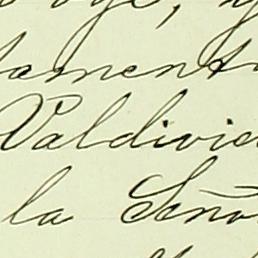 oye, y
tamento
Valdivie
la Seño